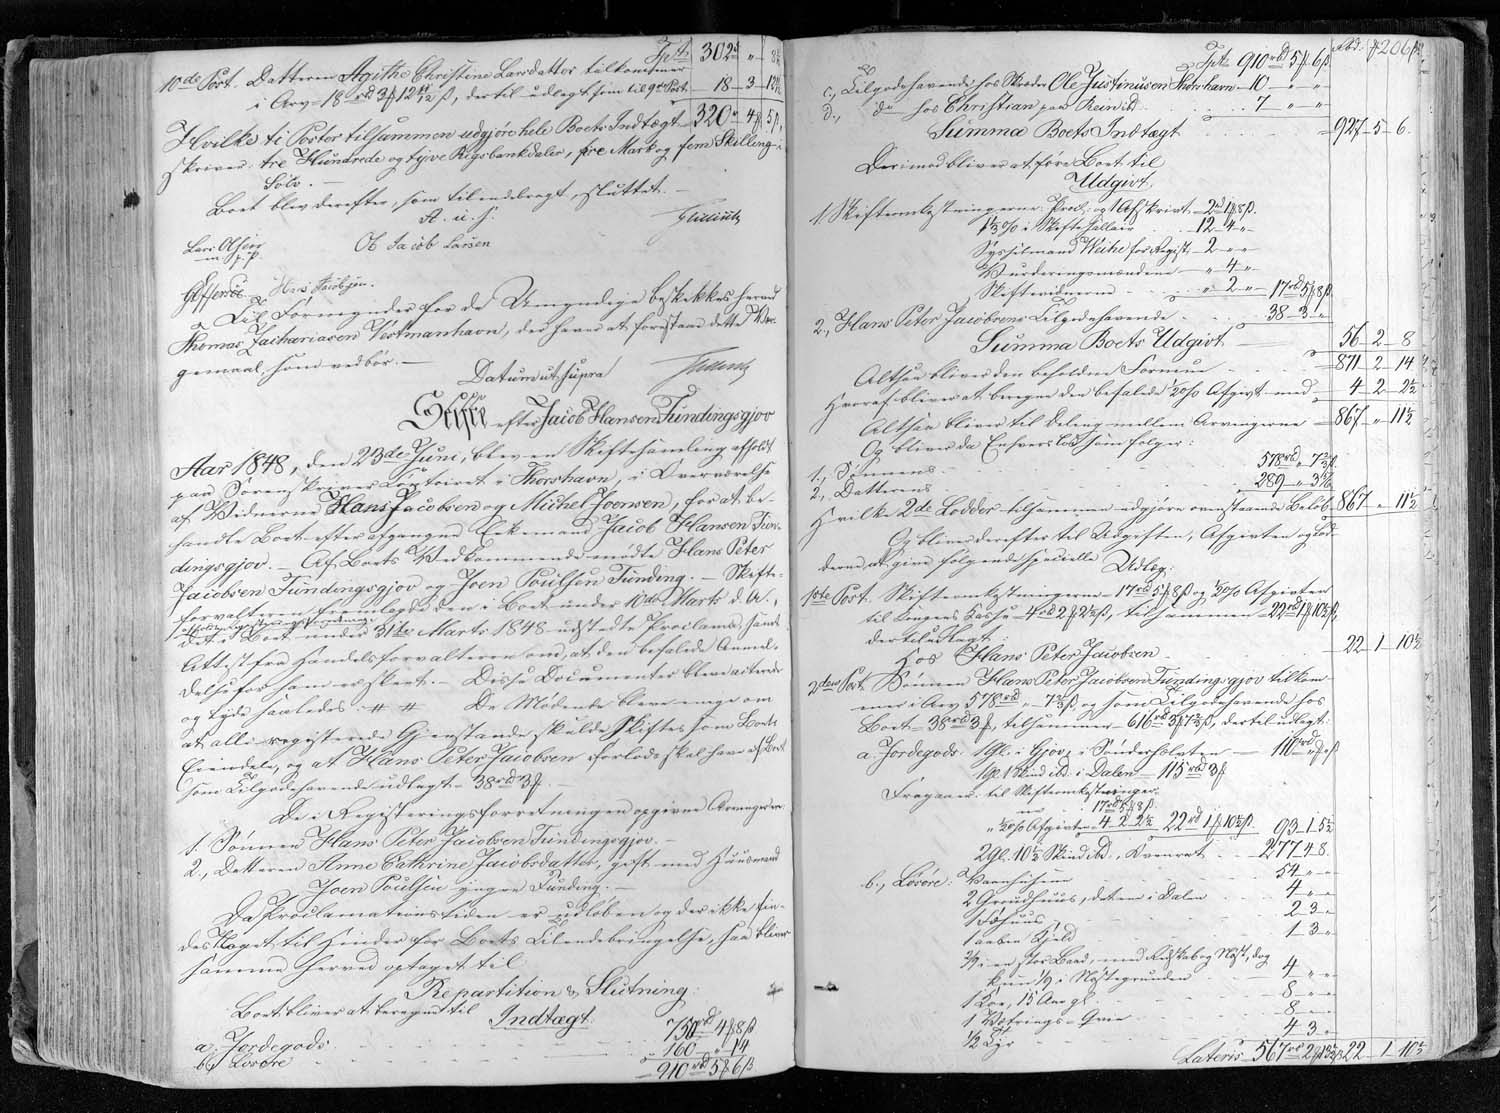 Tpt. 302 rd " - 8½
10de Post. Datteren Agithe Christine Larsdatter tilkommer
i Arv 18 rd 3 ℳ 12 11/12 ß, dertil udlagt som til 9de Post 18 - 3 - 12½
Hvilke ti Poster tilsammen udgjøre hele Boets Indtægt 320 rd 4 ℳ 5 ß,
skriver tre Hundrede og tyve Rigsbankdaler, fire Mark og fem Skilling i
Sølv. —
Boet blev derefter, som tilendebragt, sluttet. —
A. u. s.
Lars Olsen
m. f. P.
Ole Jacob Larsen
G Effersöe Hans Jacobsen.
Til Formynder for de Umyndige beskikkes herved
Thomas Zachariasen Vestmanhavn, der haver at forestaae dette Vær-
gemaal, som vedbør. —
Datum ut supra
Skifte efter Jacob Hansen Tundingsgjov
Aar 1848, den 23de Juni, blev en Skiftesamling afholdt
paa Sorenskriver Contoiret i Thorshavn, i Overværelse
af Vidnerne Hans Jacobsen og Michel Joensen, for at be-
handle Boet efter afgangne Enkemand Jacob Hansen Tun-
dingsgjov. — Af Boets Vedkommende mødte Hans Peter
Jacobsen Tundingsgjov og Joen Poulsen Tunding. — Skifte-
forvalteren fremlagde den i Boet under 10de Marts d. A.,
afholdte Registreringsforretning
det i Boet under 31te Marts 1848 udstedte Proclama, samt
Attest fra Handelsforvalteren om, at den befalede Anmel-
delse for ham er skeet. — Disse Documenter bleve acterede
og lyde saaledes: # # De Mødende bleve enige om
at alle registerede Gjenstande skulde skiftes som Boets
Eiendele, og at Hans Peter Jacobsen forlods skal have af Boet
som Tilgodehavende udlagt 38 rd 3 ℳ. —
De i Registeringsforretningen opgivne Arvinger ere:
1. Sønnen Hans Peter Jacobsen Tundingsgjov. —
2., Datteren Anne Cathrine Jacobsdatter, gift med Huusmand
Joen Poulsen yngre Tunding. —
Da Proclamationstiden er udløben og der ikke fin-
des Noget til Hinder for Boets Tilendebringelse, saa bliver
samme herved optaget til
Repartition & Slutning:
Boet bliver at beregne til Indtægt:
a., Jordegods 750 rd 4 ℳ 8 ß
b., Løsøre 160 " 14
910 rd 5 ℳ 6 ß
Rbd. ℳ 206 ß
Tpt. 910 rd 5 ℳ 6 ß
c., Tilgodehavende hos Skræder Ole Justinuson Thorshavn 10 " "
d., do hos Christian paa Rein ibd. 7 " "
Summa Boets Indtægt 927 - 5 - 6.
Derimod bliver at føre Boet til
Udgivt.
1. Skifteomkostningerne: Procl. og 1 Afskrivt 2 rd 1 ℳ 8 ß.
1⅓ % i Skiftesallair 12 - 4 "
Sysselmand Weihe for Regist. 2 " "
Vurderingsmændene " 4 "
Skiftevidnerne " 2 " 17 rbd 5 ℳ 8 ß
2., Hans Peter Jacobsens Tilgodehavende 38 - 3 - "
Summa Boets Udgivt 56 - 2 - 8
Altsaa bliver den beholdne Formue 871 - 2 - 14
Hvoraf bliver at beregne den befalede ½ % Afgivt med 4 - 2 - 2½
Altsaa bliver til Deling mellem Arvingerne 867 - " - 11½
Og bliver da Enhvers Lod som følger:
1., Sønnens 578 rd " 7⅔ ß
2., Datterens 289 " 3⅚
Hvilke 2de Lodder tilsammen udgjøre ovenstaaende Beløb 867 " 11½
Og blives derefter til Udgivten, Afgivten og Lod-
derne, at give følgende specielle Udlæg:
1ste Post. Skifteomkostningerne 17 rd 5 ℳ 8 ß og ½ % Afgivten
til Kongens Kasse 4 rd 2 ℳ 2½ ß, tilsammen 22 rd 1 ℳ 10½ ß,
dertil udlagt:
Hos Hans Peter Jacobsen 22 - 1 - 10½
2den Post. Sønnen Hans Peter Jacobsen Tundingsgjov tilkom-
mer i Arv 578 rd " 7⅔ ß, og som Tilgodehavende hos
Boet 38 rd 3 ℳ, tilsammen 616 rd 3 ℳ 7⅔ ß, dertil udlagt:
a. Jordegods: 1 Gl. i Gjov, i Sönderholaten 110 rd " ℳ " ß
1 Gl. 1 Skind ibd. i Dalen 115 rbd 3 ℳ
Fragaaer til Skifteomkostninger
17 rd 5 ℳ 8 ß
" ½ % Afgivten 4 2 2½ 22 rd 1 ℳ 10½ ß. 93 - 1 - 5½
2 Gl. 10½ Skind ibd., Kvenret 277 - 4 - 8.
b., Løsøre: Vaanhuset 54 " "
2 Grudhuus, det ene i Dalen 4 " "
1 Fæhuus 2 - 3 "
1 aaben Hjeld 1 - 3 "
⅜ i en stor Baad, med Redskab og Nøst, dog
kun ⅓ i Nøstegrunden 4 " "
1 Koe, 15 Aar gl. 8 " "
1 Vætrings-Qvie 8 " "
½ Tyr 4 3 "
Lateris 567 rd 2 ℳ 13½ ß 22 - 1 - 10½